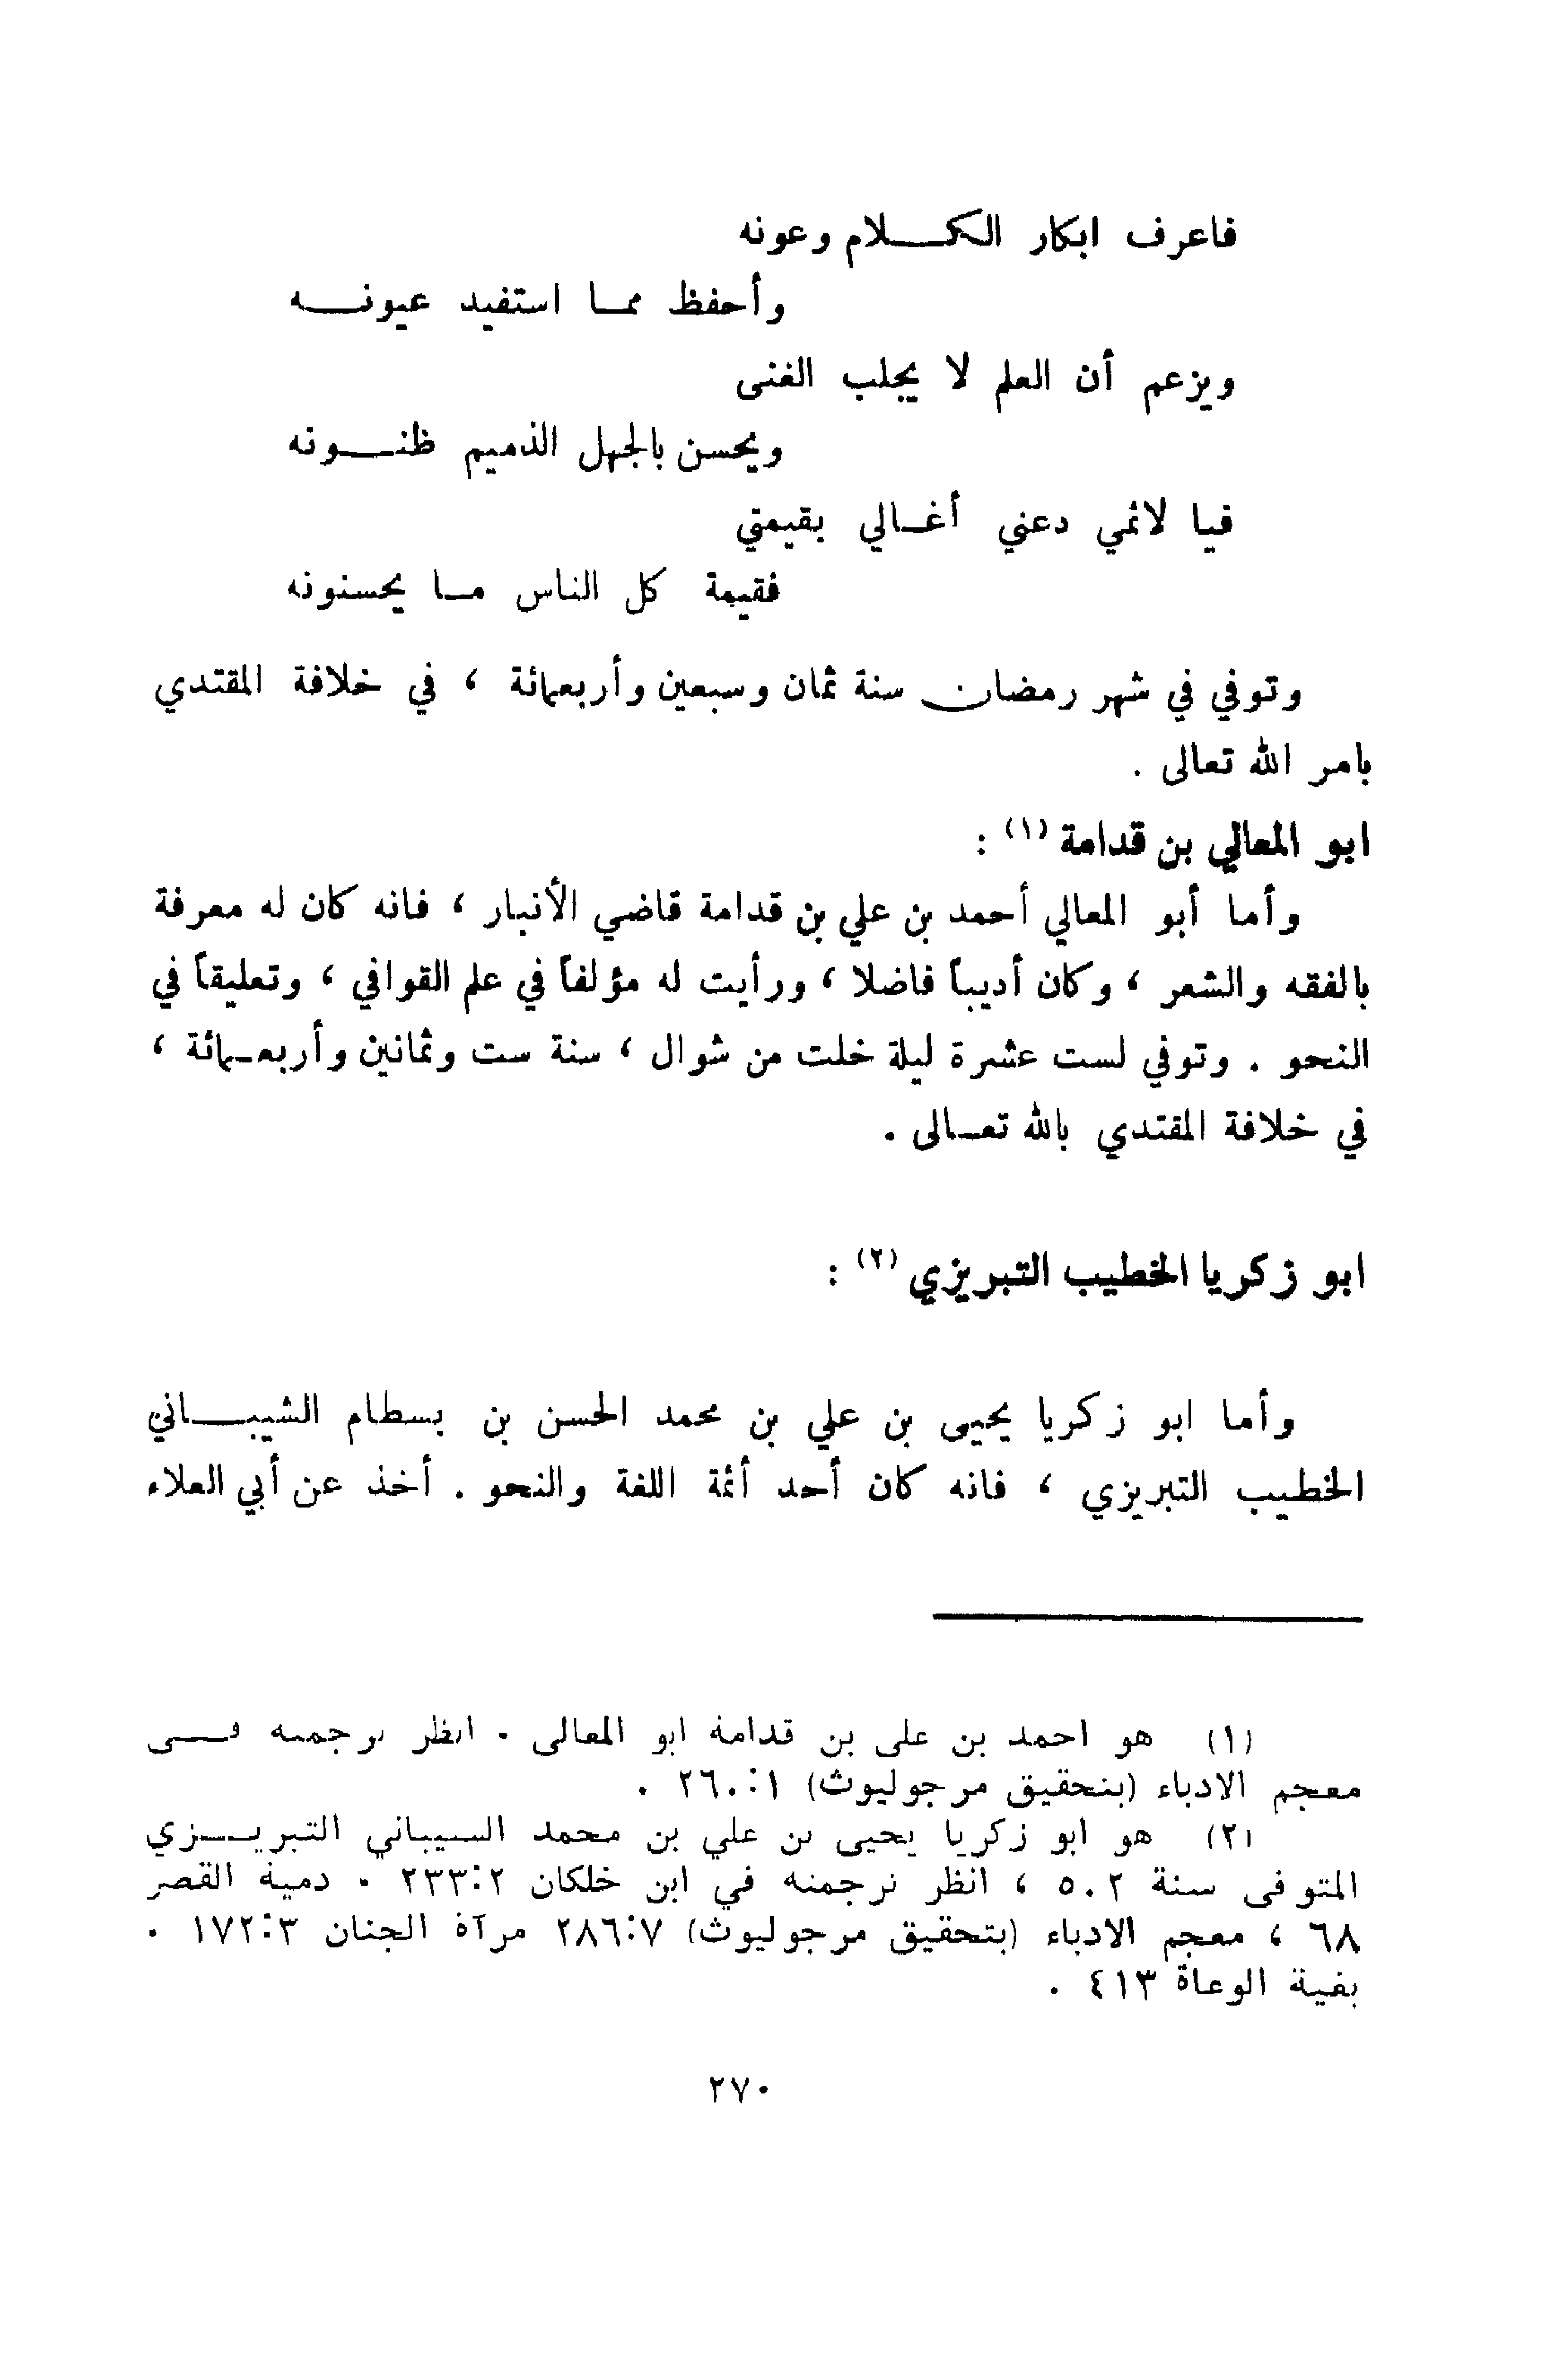 فاعرف ابكار الكلام وعونه
وأحفظ مما استفيد عيونه
ويزعم أن العلم لا يجلب الغنى
ويحسن بالجهل الذميم ظنونه
فيا لائمي دعني أغالي بقيمتي
فقيمة كل الناس ما يحسنونه
وتوفي في شهر رمضان سنة ثمان وسبعين وأربعمائة ، في خلافة المقتدي
بامر الله تعالى .
ابو المعالي بن قدامة (١) :
وأما أبو المعالي أحمد بن علي بن قدامة قاضي الأنبار ، فانه كان له معرفة
بالفقه والشعر ، وكان أديباً فاضلا ، ورأيت له مؤلفاً في علم القوافي ، وتعليقاً في
النحو . وتوفي لست عشرة ليلة خلت من شوال ، سنة ست وثمانين وأربعمائة ،
في خلافة المقتدي بالله تعالى .
ابو زكريا الخطيب التبريزي (٢) :
وأما ابو زكريا يحيى بن علي بن محمد الحسن بن بسطام الشيباني
الخطيب التبريزي ، فانه كان أحد أئمة اللغة والنحو . أخذ عن أبي العلاء
(١) هو احمد بن على بن قدامة ابو المعالى . انظر ترجمته فى
معجم الادباء (بتحقيق مرجوليوث) ٢٦٠:١ .
(٢) هو ابو زكريا يحيى بن علي بن محمد الشيباني التبريزي
المتوفى سنة ٥٠٢ ، انظر ترجمته في ابن خلكان ٢٣٣:٢ . دمية القصر
٦٨ ، معجم الادباء (بتحقيق مرجوليوث) ٢٨٦:٧ مرآة الجنان ١٧٢:٣ .
بغية الوعاة ٤١٣ .
٢٧٠